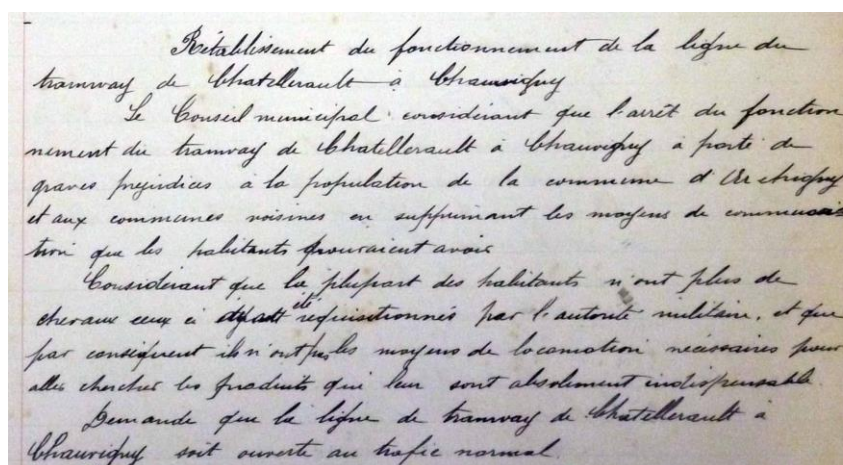 Rétablissement du fonctionnement de la ligne du
tramway de Chatellerault à Chauvigny
Le Conseil municipal considérant que l'arrêt du fonction
nement du tramway de Chatellerault à Chauvigny a porté de
graves préjudices à la population de la commune d'Archigny
et aux communes voisines en supprimant les moyens de
tion que les habitants pouvaient avoir
Considérant que la plupart des habitants n'ont plus de
chevaux ceux ci été réquisitionnés par l'autorité militaire, et que
par conséquent ils n'ont pas les moyens de locomotion nécessaires pour
aller chercher les produits qui leur sont absolument indispensable.
Demande que la ligne de tramway de Chatellerault à
Chauvigny soit ouverte au trafic normal.